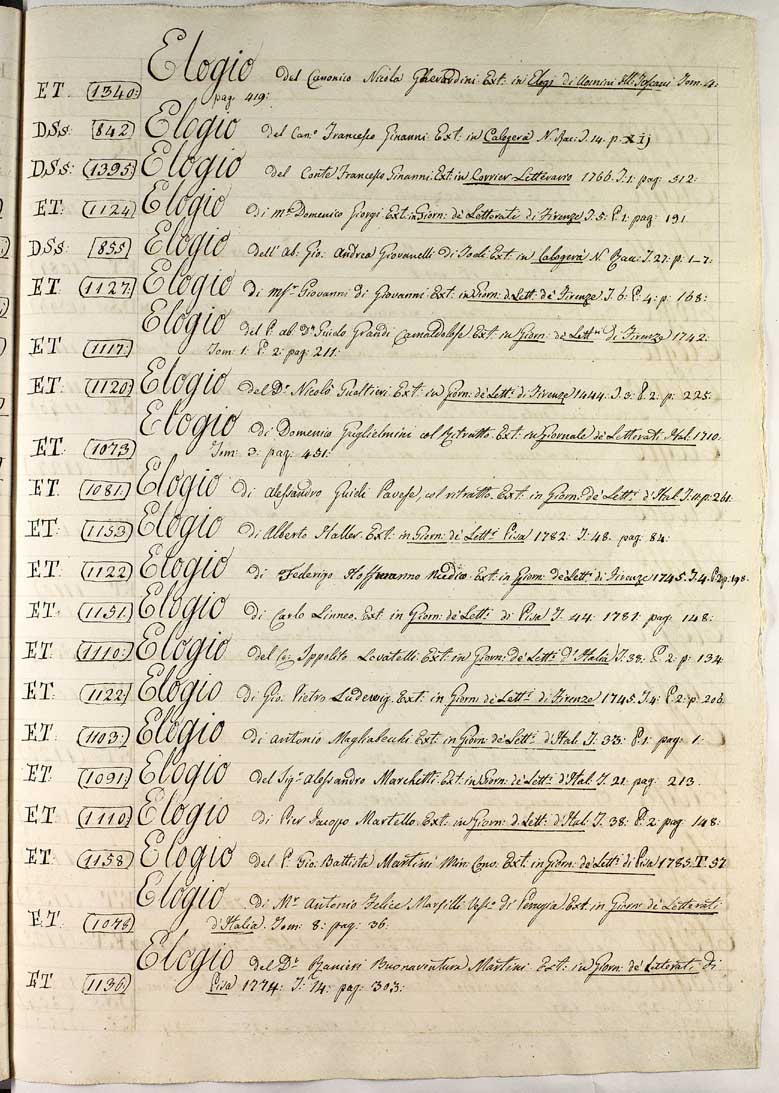 Elogio del Canonico Nicola Gherardini. Ext: in Elogj di Uomini Ill: Toscani Tom. 4:
ET. 1340: pag. 419:
DSs: 842 Elogio del Can.º Francesco Ginanni. Ext: in Calogerà N. Rac: T. 14. p. xij
DSs: 1395 Elogio del Conte Francesco Ginanni. Ext: in Corrier Letterario 1766. T. 1: pag: 512:
ET: 1124 Elogio di m.r Domenico Giorgi Ext: in Giorn: de' Letterati di Firenze T. 5: P. 1: pag: 191
DSs: 855 Elogio dell' Ab. Gio. Andrea Giovanelli di Todi Ext: in Calogerà N. Rac: T. 27: p: 1-7:
ET: 1127: Elogio di msr Giovanni di Giovanni. Ext: in Giorn: d. Lett: de' Firenze T. 6: P. 4: p: 168:
Elogio del P. ab. Dn Guido Grandi Camaldolese Ext: in Giorn: de' Lettti di Firenze 1742:
ET 1117: Tom: 1: P. 2: pag: 211:
ET: 1120: Elogio del Dr Nicolò Gualtieri. Ext: in Gorn: de' Letti: di Firenze 1444: T. 3: P. 2: p: 225.
Elogio di Domenico Guglielmini col Ritratto. Ext: in Giornale de' Letterati Ital: 1710:
ET: 1073 Tom: 3: pag: 451:
ET: 1081: Elogio di Alessandro Guidi Pavese, col ritratto. Ext: in Giorn: de' Letti d'Ital: T. 11. p: 261:
ET: 1153 Elogio di Alberto Haller. Ext: in Giorn: de' Letti Pisa 1782: T: 48. pag: 84:
ET: 1122 Elogio di Federigo Hoffmanno Medico. Ext: in Giorn: de' Letti di Firenze 1745. T. 4. P. 2. p: 198.
ET: 1151: Elogio di Carlo Linneo. Ext: in Giorn: de' Letti: di Pisa T. 44: 1781: pag: 148:
ET: 1110: Elogio del Ippolito Lovatelli. Ext: in Giorn: de' Letti: d'Italia T. 38: P. 2: p: 134
ET: 1122: Elogio di Gio: Pietro Ludewig. Ext: in Giorn: de' Letti: di Firenze 1745. T. 4: P. 2: p: 206.
ET: 1103: Elogio di Antonio Magliabechi. Ext: in Giorn: de' Letti: d'Ital: T: 33: P. 1: pag: 1:
ET: 1091: Elogio del Sigr Alessandro Marchetti. Ext: in Giorn: de' Letti: d'Ital: T. 21: pag: 213.
ET: 1110: Elogio di Pier Jacopo Martello. Ext: in Giorn: d. Lett: d'Ital: T. 38: P. 2: pag: 148:
ET: 1158: Elogio del P. Gio: Battista Martini Min: Conv: Ext: in Giorn: de' Letti di Pisa 1785: T: 57
Elogio di Mr Antonio Felice Marsilli Vesc.º di Perugia Ext: in Giorn: de' Letterati
ET: 1078: d'Italia. Tom: 8: pag: 36:
Elogio del Dr Ranieri Buonaventura Martini Ext: in Giorn: de' Letterati di
ET 1136: Pisa 1774: T: 14: pag: 303: